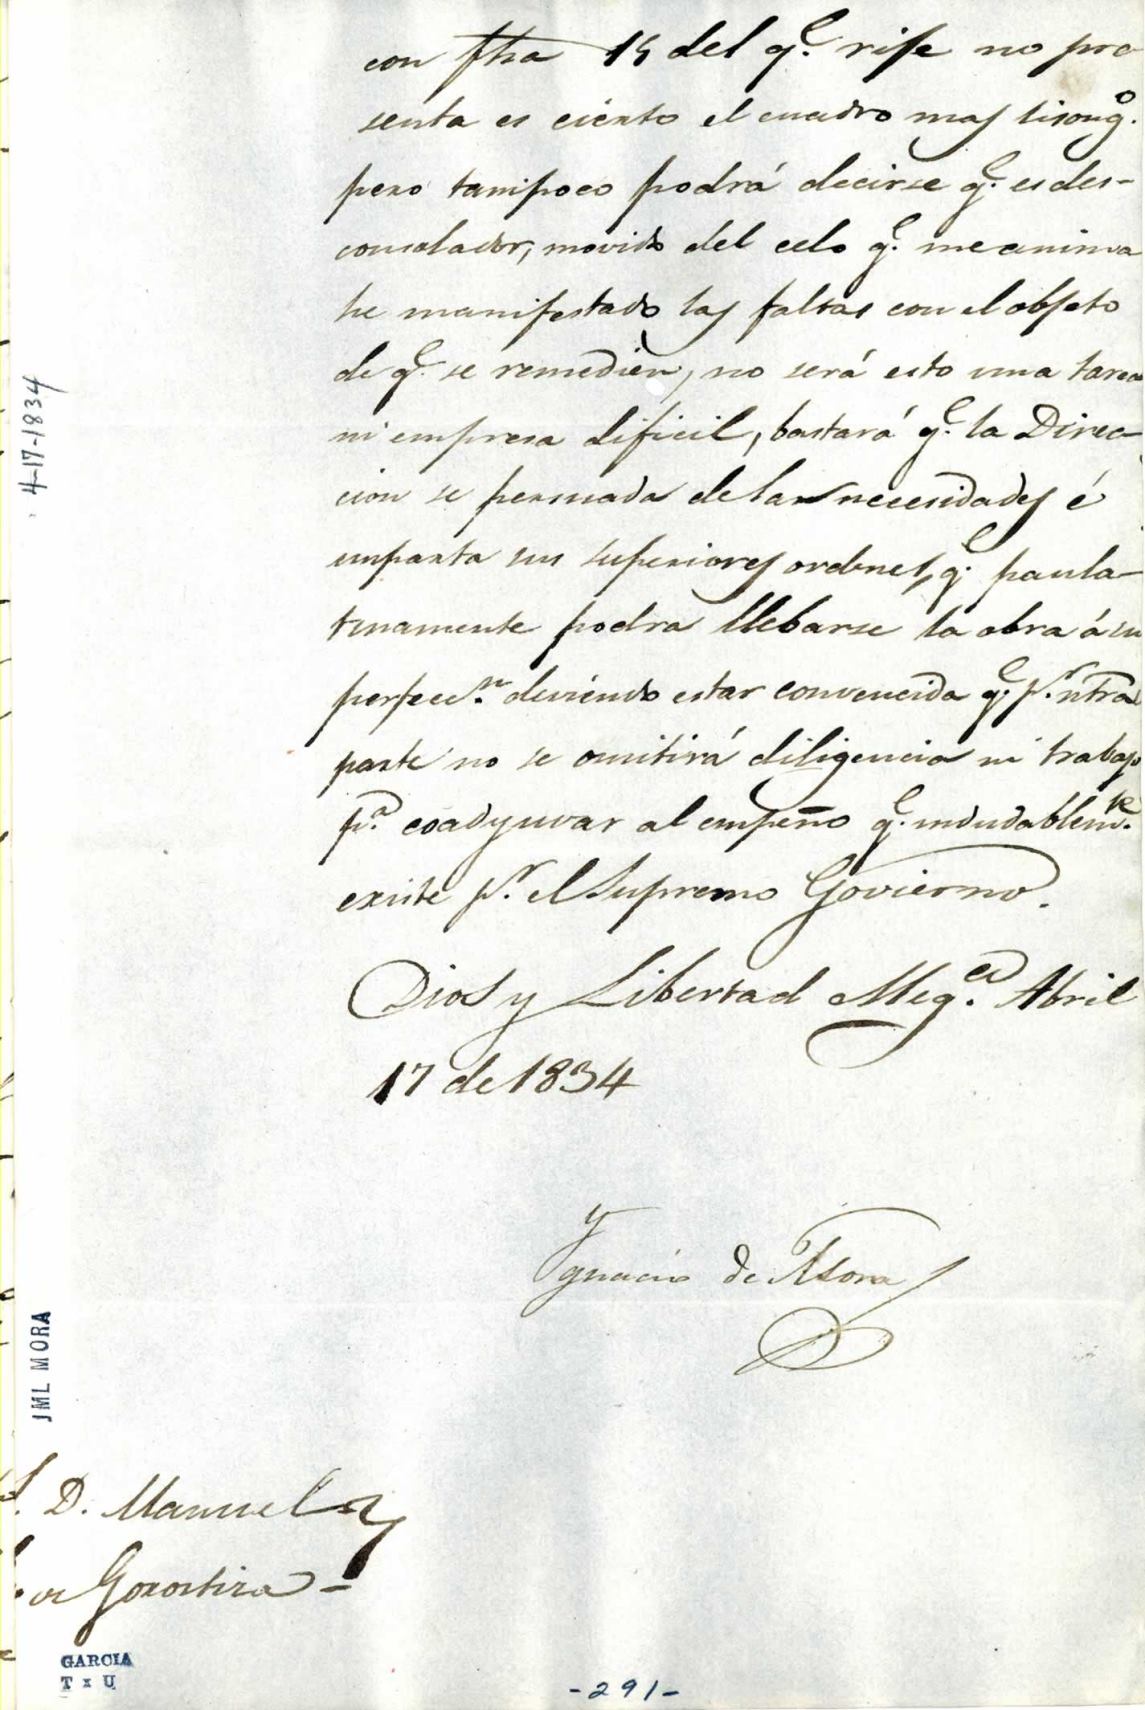 con fha 15 del q.e rije no pre
senta es cierto el cuadro mas lisong.o
pero tampoco podrá decirse q.e es des-
consolador, movido del celo q.e me anima
he manifestado las faltas con el objeto
de q.e se remedien, no será esto una tarea
ni empresa dificil, bastará q.e la Direc-
cion se persuada de las necesidades é
imparta sus superiores ordenes, q.e paula-
tinamente podra llebarse la obra á su
perfecc.n deviendo estar convencida q.e p.r ntra
parte no se omitirá diligencia ni trabajo
p.a coadyuvar al empeño q.e indudablem.te
existe p.r el Supremo Govierno.
Dios y Libertad Meg.co Abril
17 de 1834
Ygnacio de Mora
D. Manuel
Gorostiza -
4-17-1834
JML MORA
GARCIA
T x U
-291-